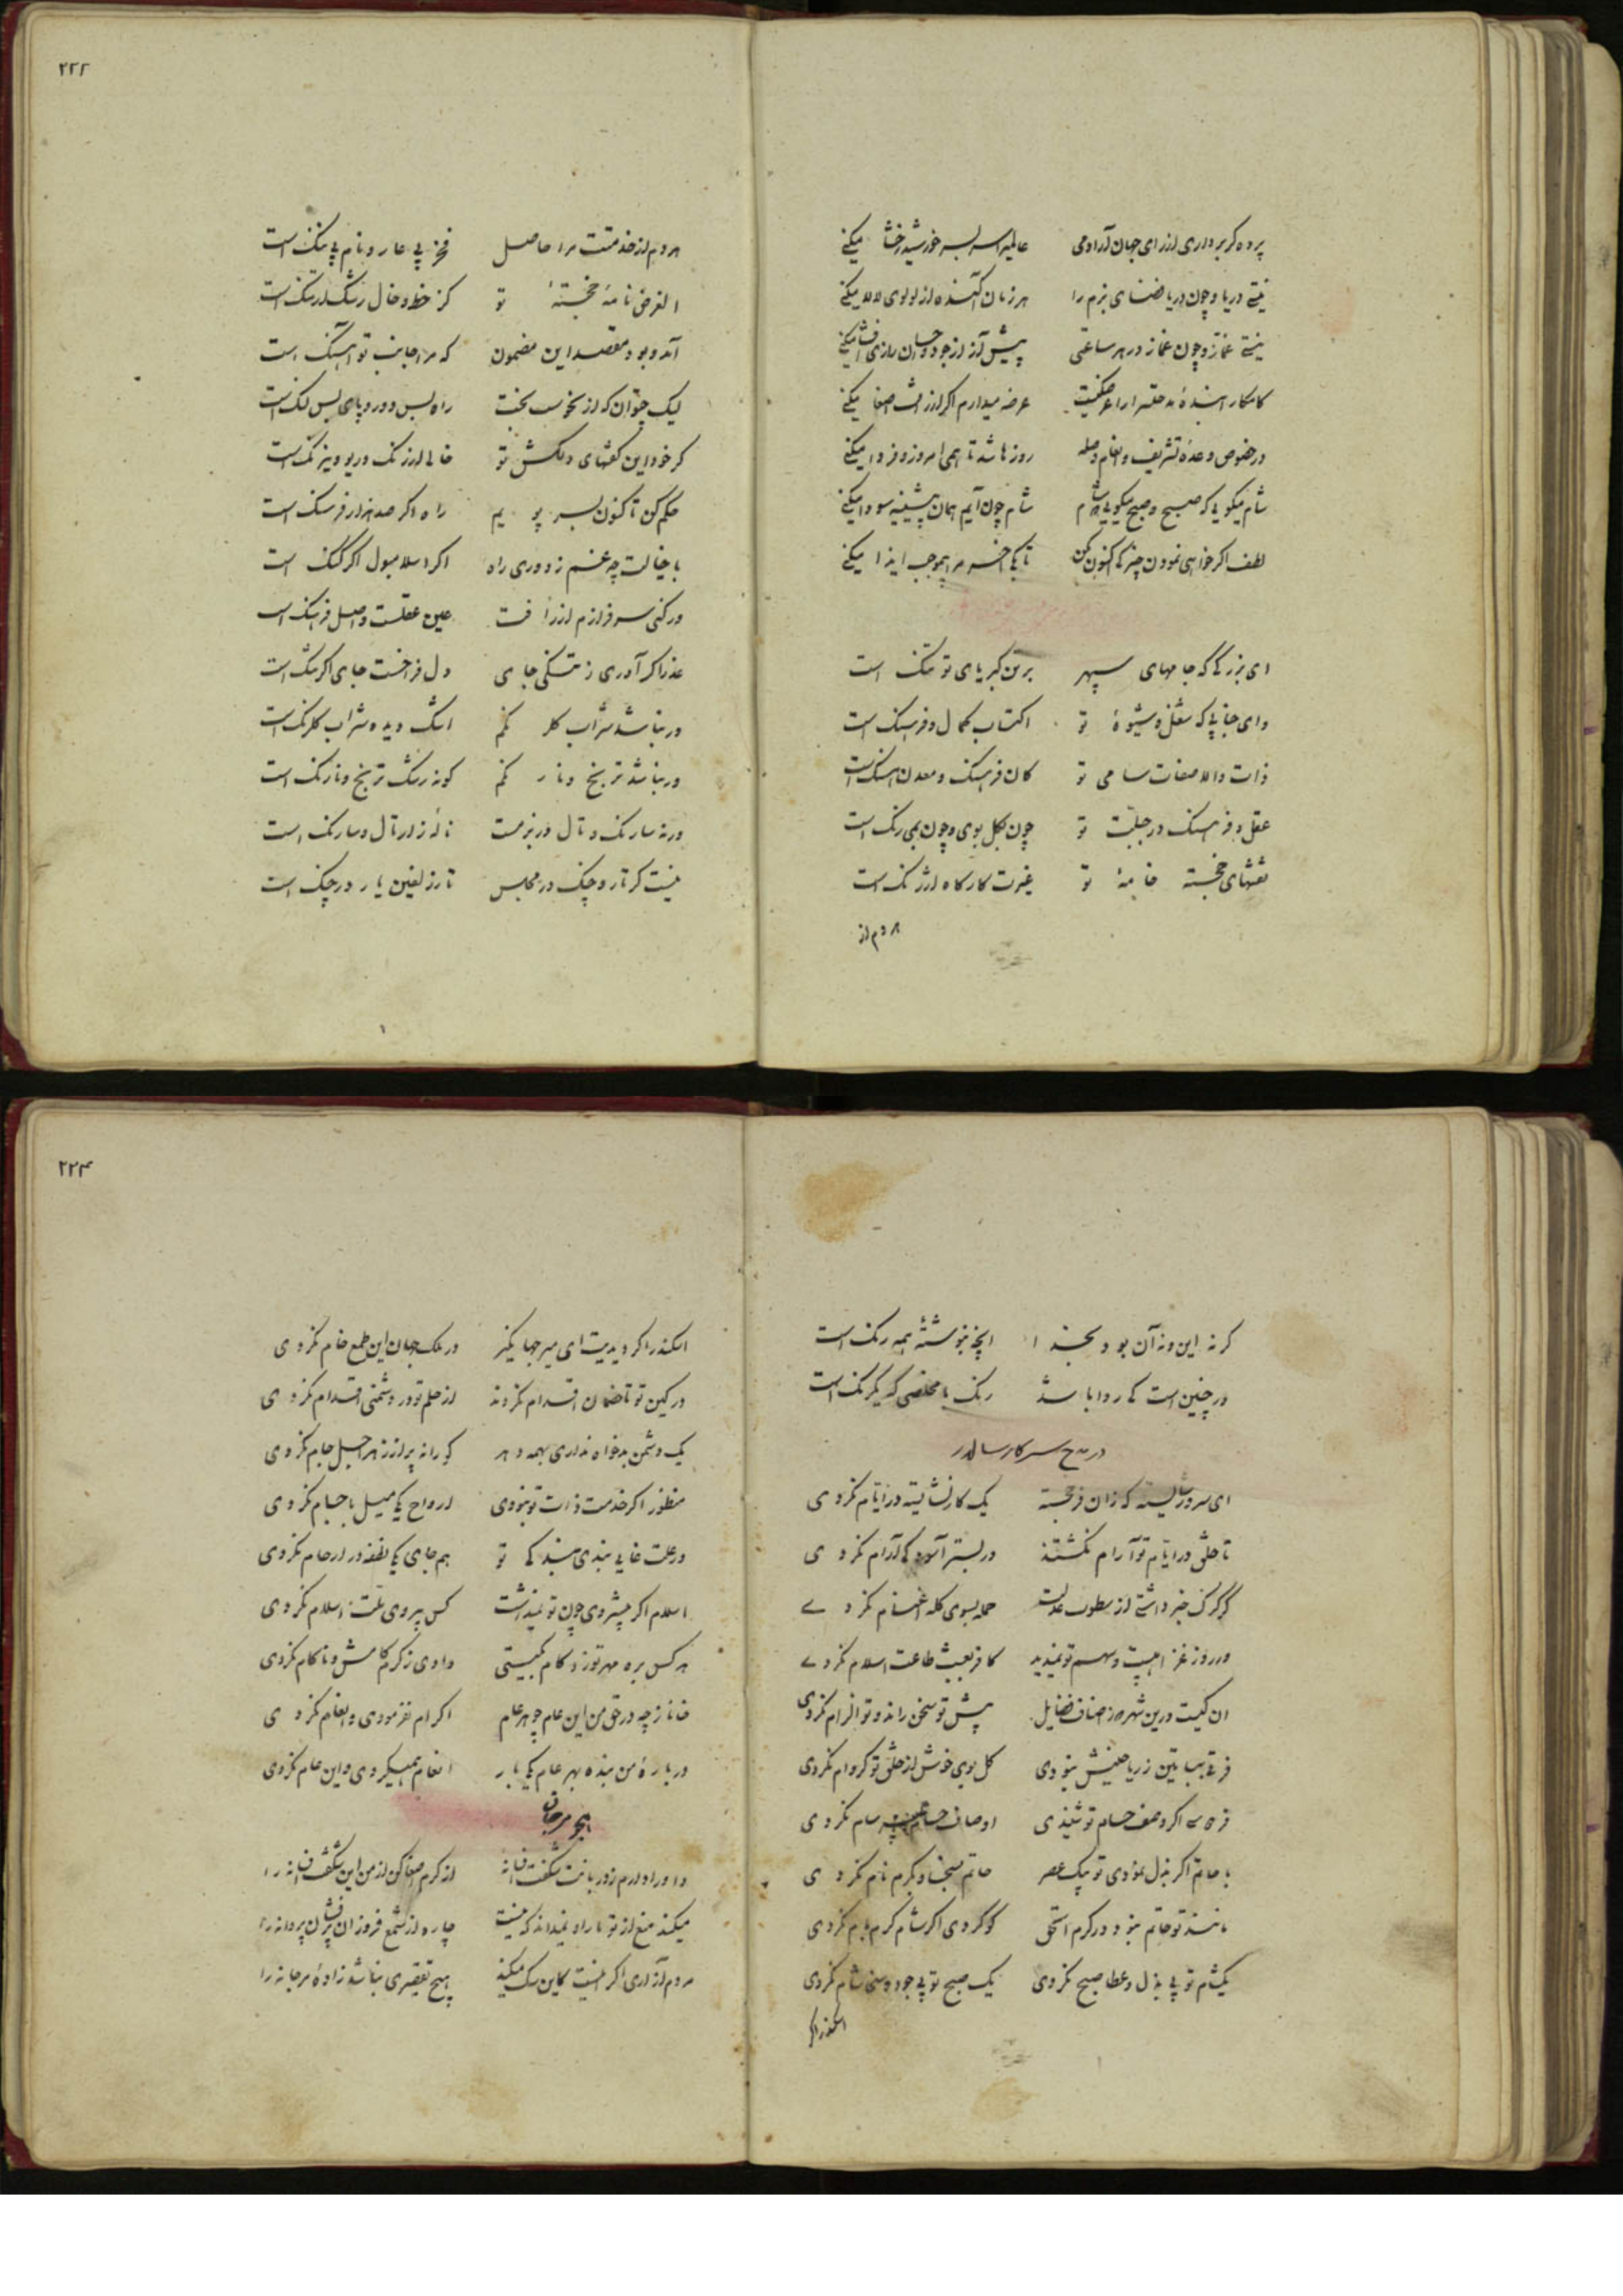 ۲۲۲
پرده گر برداری از رای جهان آرا دمی عالمی را سر بسر خورشید رخشا میکنی
نیتی دریا و چون دریا فضای بزم را هر زمان آکنده از لولوی لالا میکنی
نیتی غماز و چون غماز در هر ساعتی پیش آز از جود و احسان رازی افشا میکنی
کامکارا بنده ات عرضه میدارم اگر از لطف اصغا میکنی
در خصوص وعده تشریف و انعام و صله روزها شد تا همی امروز و فردا میکنی
شام میگویی که صبح و صبح میگویی که شام شام چون آیم همان پیشینه سودا میکنی
لطف اگر خواهی نمودن چیزکی اکنون بکن تا بکی آخر مرا بیموجب ایذا میکنی
ای بزرگی که جامهای سپهر بر تن کبریای تو تنگ است
وای جنابی که شغل و شیوۀ تو اکتساب کمال و فرهنگ است
ذات والا صفات سامی تو کان فرهنگ و معدن هنگ است
عقل و فرهنگ در جبلّت تو چون بگل بوی و چون بمی رنگ است
نقشهای خجسته خامۀ تو غیرت کارگاه ارژنگ است
هر دم از
هر دم از خدمتت مرا حاصل فخر بی عار و نام بی ننگ است
الغرض نامۀ خجستۀ تو کز خط و خال رشک ارتنگ است
آمد و بود مقصد این مضمون که مرا جانب تو آهنگ است
لیک چتوان که از نحوست بخت راه بس دور و پای بس لنگ است
گر خود این گفتهای دلکش تو خالی از رنگ و ریو و نیرنگ است
حکم کن تا کنون بسر پویم راه اگر صد هزار فرسنگ است
با خیالت چه غم ز دوری راه اگر اسلامبول اگر گنگ است
ور کنی سرفرازم از رأفت عین عقلست و اصل فرهنگ است
عذر اگر آوری ز تنگی جای دل فراخست جای اگر تنگ است
ور نباشد شراب گلرنگم اشک دیده شراب گلرنگ است
ور نباشد ترنج و نارنگم گونه رشک ترنج و نارنگ است
ور نه سارنگ و تال در بزمست نالۀ زار تال و سارنگ است
نیست گر تار و چنگ در مجلس تار زلفین یار در چنگ است
۲۲۳
گر نه این و نه آن بود بخدا آنچه بنوشتۀ همه رنگ است
ور چنین است کی روا باشد رنگ با مخلصی که یکرنگ است
در مدح سرکار سالار
ای سرور شایسته که زان فرخجسته یک کار نشایسته در ایام نکردی
تا خلق در ایام تو آرام نگشتند در بستر آسوده کی آرام نکردی
گر گرگ خبر داشتی از سطوت عدلت حمله بسوی گله اغنام نکردی
ور روز غزا هیبت و سهم تو ندیدی کافر بعبث طاعت اسلام نکردی
آن کیست درین شهر ز اصناف فضایل پیش تو سخن راند و تو الزام نکردی
فرقی ببساتین ز ریاحینش نبودی گل بوی خوش از خلق تو گر وام نکردی
اگر وصف حسام تو شنیدی اوصاف حسام سام نکردی
با حاتم اگر بذل نمودی تو بیک عصر حاتم بسخا و بکرم نام نکردی
مانند تو حاتم نبود در کرم الحق کو کردی اگر شام کرم بام نکردی
یکشام تو بی بذل و عطا صبح نکردی یک صبح تو بی جود و سخا شام نکردی
اسکندر اگر
اسکندر اگر دیدیت ای میر جهانگیر در ملک جهان این طمع خام نکردی
در کین تو تا خصمان اقدام نکردند از حلم تو در دشمنی اقدام نکردی
یک دشمن بدخواه نداری بهمه دهر کو را نه پر از زهر اجل جام نکردی
منظور اگر خدمت ذات تو نبودی ارواح یکی میل باجسام نکردی
در علت غایی بندی کی تو هم جای یکی نطفه در ارحام نکردی
اسلام اگر پیشروی چون تو نمیداشت کس پیروی ملت اسلام نکردی
هر کس بره مهر تو زد کام بگیتی دادی ز کرم کامش و ناکام نکردی
خانا ز چه در حق من این عام چو هر عام اکرام نفرمودی و انعام نکردی
دربارۀ من بنده بهر عام یکی بار انعام همیکردی و این عام نکردی
هجو مرجان
داورا دارم ز دربانت شگفت افسانه از کرم اصغا کن از من این شگفت افسانه را
میکند منع از تو ما را و نمیداند که نیست چاره از شمع فروزان پرفشان پروانه را
مردم آزاری اگر نیست کاین سگ میکند هیچ تقصیری نباشد زادۀ مرجانه را